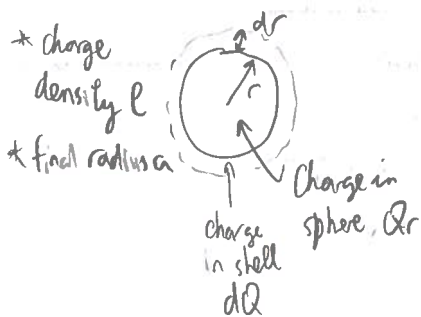 * charge
density ρ
* final radius a
dr
r
charge
in shell
dQ
Charge in
sphere, Qr